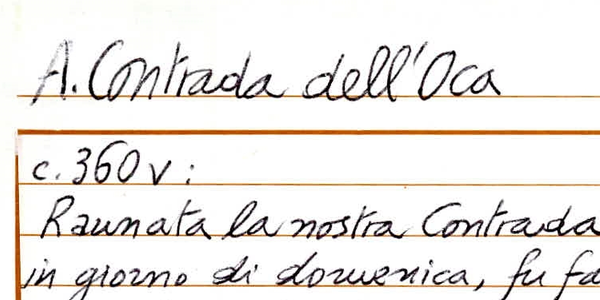 A. Contrada dell'Oca
c. 360 v:
Raunata la nostra Contrada
in giorno di domenica, fu fa